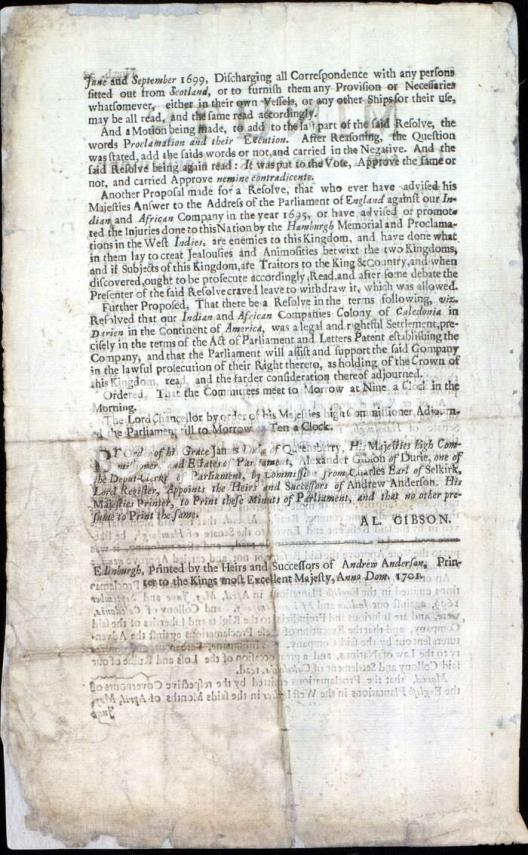 June and September 1699, Discharging all Correspondence with any persons
fitted out from Scotland, or to furnish them any Provision or Necessaries
whatsomever, either in their own Vessels, or any other Ships for their use,
may be all read, and the same read accordingly.
And a Motion being made, to add to the last part of the said Resolve, the
words Proclamation and their Execution. After Reasoning, the Question
was stated, add the saids words or not, and carried in the Negative. And the
said Resolve being again read: It was put to the Vote, Approve the same or
not, and carried Approve nemine contradicente.
Another Proposal made for a Resolve, that who ever have advised his
Majesties Answer to the Address of the Parliament of England against our In-
dian and African Company in the year 1695, or have advised or promo-
ted the Injuries done to this Nation by the Hamburgh Memorial and Proclama-
tions in the West Indies, are enemies to this Kingdom, and have done what
in them lay to creat Jealousies and Animosities betwixt the two Kingdoms,
and if Subjects of this Kingdom, are Traitors to the King & Country, and when
discovered, ought to be prosecute accordingly, Read, and after some debate the
Presenter of the said Resolve craved leave to withdraw it, which was allowed.
Further Proposed, That there be a Resolve in the terms following, viz.
Resolved that our Indian and African Companies Colony of Caledonia in
Darien in the Continent of America, was a legal and rightful Settlement, pre-
cisely in the terms of the Act of Parliament and Letters Patent establishing the
Company, and that the Parliament will assist and support the said Company
in the lawful prosecution of their Right thereto, as holding of the Crown of
this Kingdom, read, and the farder consideration thereof adjourned.
Ordered, That the Committees meet to Morrow at Nine a Clock in the
Morning.
The Lord Chancellor by order of his Majesties high Commissioner Adjourn-
ed the Parliament till to Morrow Ten a Clock.
By Order of his Grace James Duke of Queensberry, His Majesties high Com-
missioner, and Estates of Parliament, Alexander Gibson of Durie, one of
the Deput-Clerks of Parliament, by Commission from Charles Earl of Selkirk,
Lord Register, Appoints the Heirs and Successors of Andrew Anderson, His
Majesties Printer, to Print these Minuts of Parliament, and that no other pre-
sume to Print the same.
AL. GIBSON.
Edinburgh, Printed by the Heirs and Successors of Andrew Anderson, Prin-
ter to the Kings most Excellent Majesty, Anno Dom. 1701.